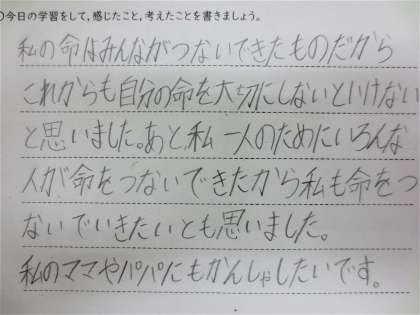 ○今日の学習をして,感じたこと,考えたことを書きましょう。
私の命はみんながつないできたものだから
これからも自分の命を大切にしないといけない
と思いました。あと私一人のためにいろんな
人が命をつないできたから私も命をつ
ないでいきたいとも思いました。
私のママやパパにもかんしゃしたいです。